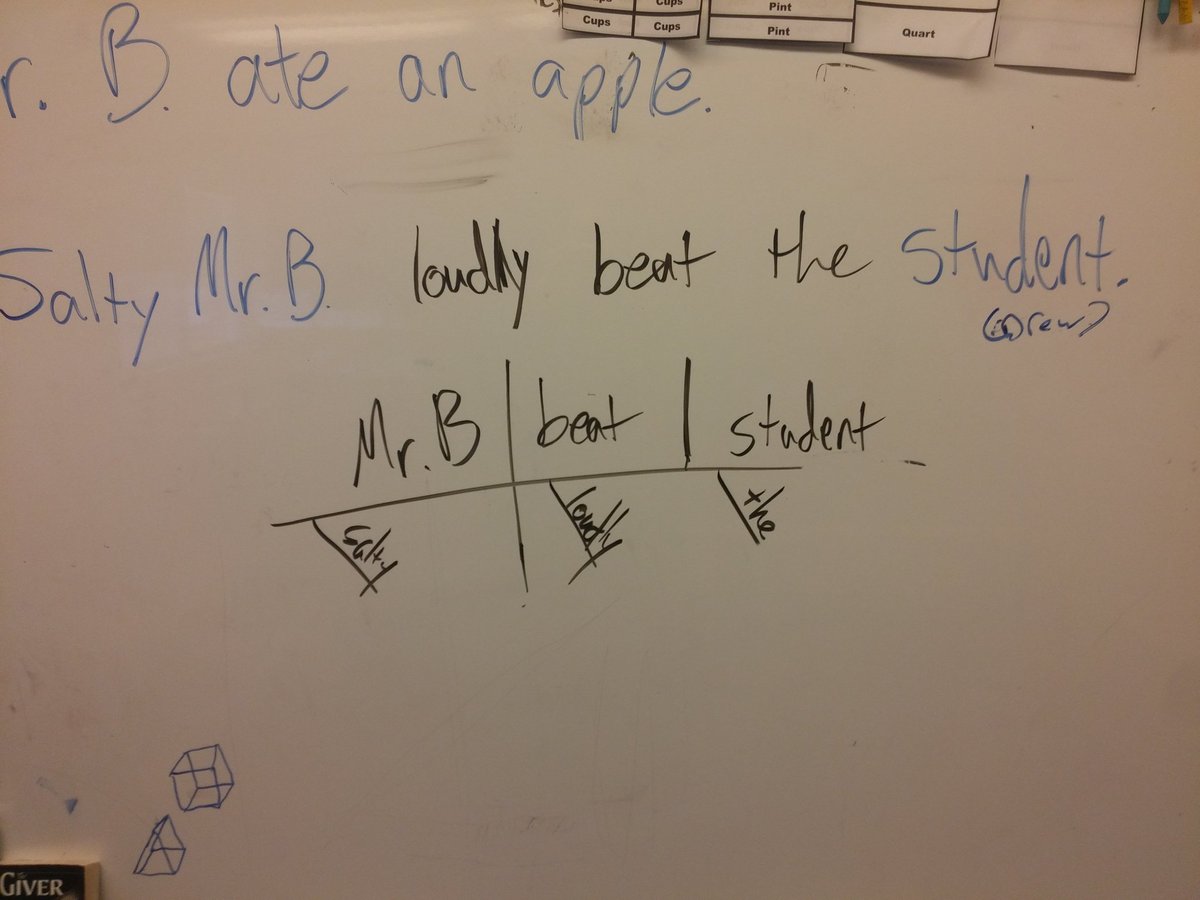 Cups Cups Pint
Cups Cups Pint Quart
r. B. ate an apple.
Salty Mr. B. loudly beat the student.
(Drew)
Mr. B beat student
Salty loudly the
GIVER